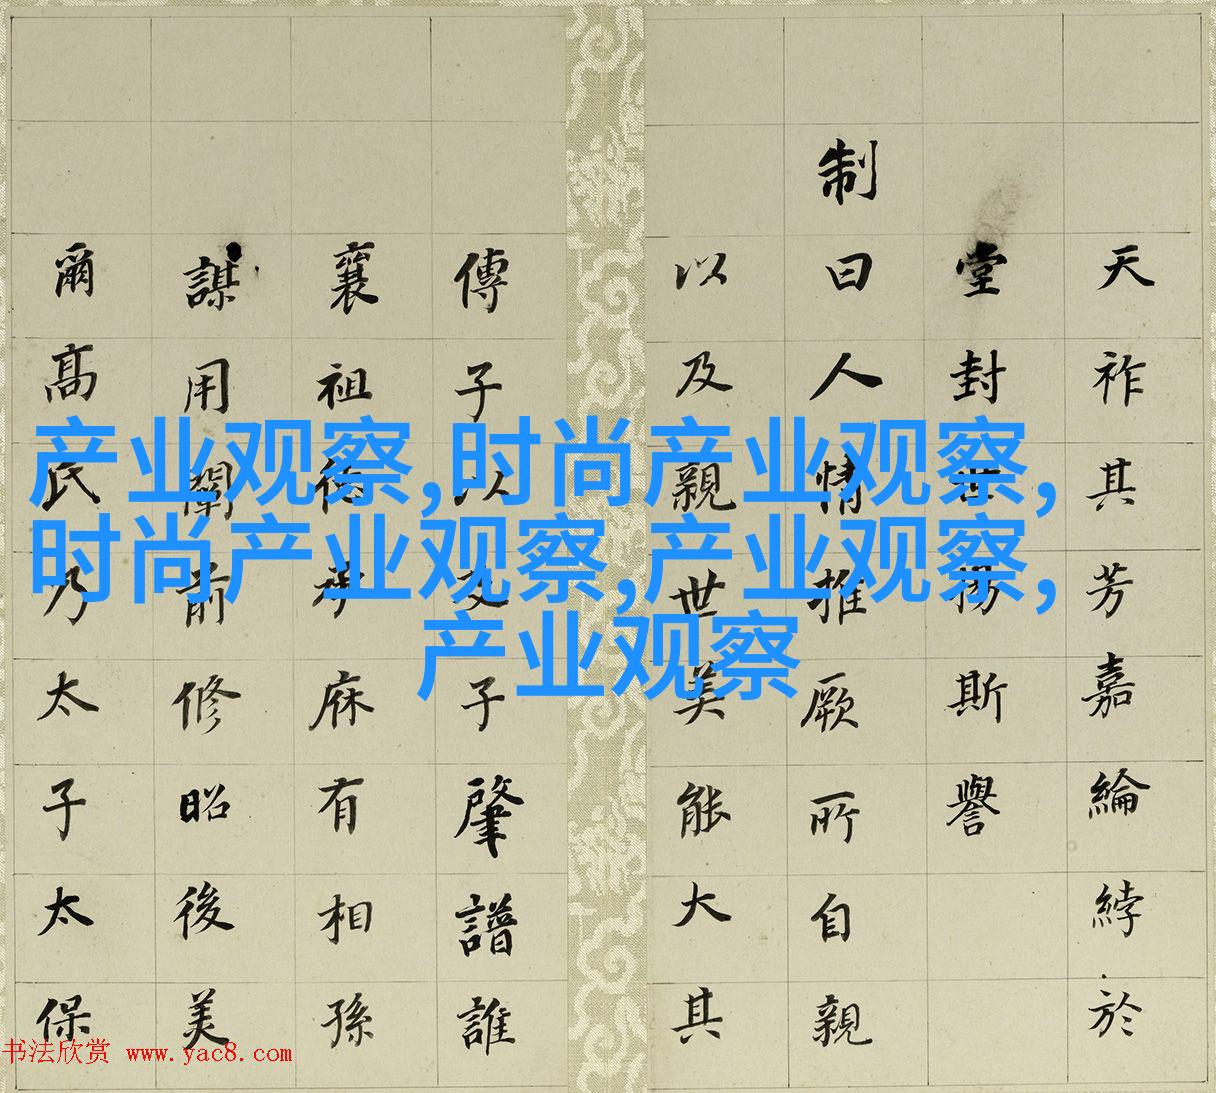 天祚其芳嘉綸綍於
堂封揚斯譽
制曰人情推厥所自親
以及親世美能大其
傳子以及子肇譜誰
襄祖承庥有相孫
謀用闡前修昭後美
爾高氏乃太子太保
产业观察,时尚产业观察,
时尚产业观察,产业观察,
产业观察
书法欣赏 www.yac8.com